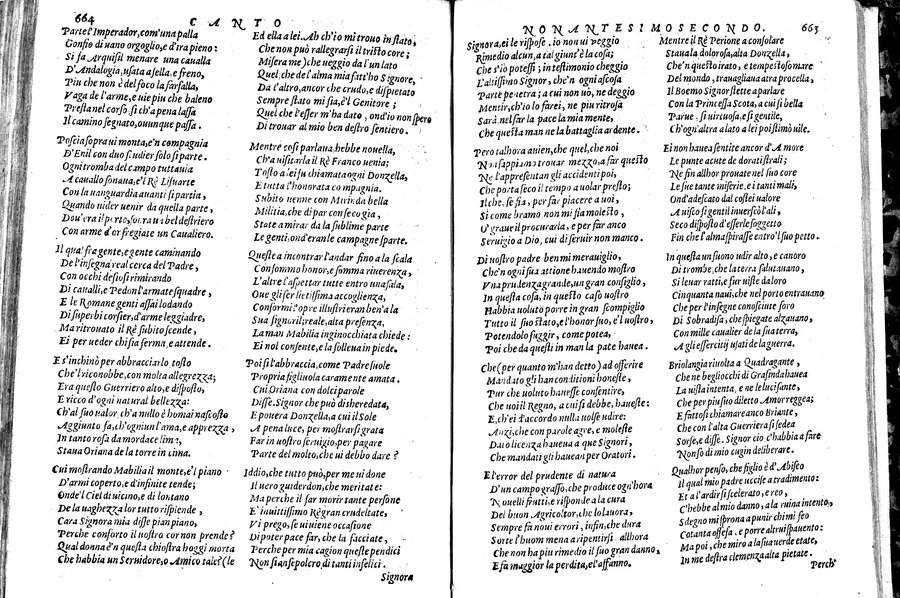 664
CANTO
Parte l'Imperador, com'una palla
Gonfio di uano orgoglio, e d'ira pieno:
Si fa Arquisil menare una caualla
D'Andalogia, usata a sella, e freno,
Piu che non è del foco la farfalla,
Vaga de l'arme, e uie piu che baleno
Presta nel corso si ch'a pena lassa
Il camino segnato, ouunque passa.
Poscia sopra ui monta, e'n compagnia
D'Enil con duo scudier solo si parte.
Ogni tromba del campo tuttauia
A cauallo sonaua, e'l Rè Lisuarte
Con la uanguardia auanti si partia,
Quando uider uenir da quella parte,
Dou'era il porto, soura un bel destriero
Con arme d'or fregiate un Caualiero.
Il qual fra gente, e gente caminando
De l'insegna real cerca del Padre,
Con occhi desiosi rimirando
Di caualli, e Pedon l'armate squadre,
E le Romane genti assai lodando
Di superbi corsier, d'arme leggiadre,
Ma ritrouato il Rè subito scende,
Ei per ueder chi sia ferma, e attende.
E s'inchinò per abbracciarlo tosto
Che'l riconobbe, con molta allegrezza;
Era questo Guerriero alto, e disposto,
E ricco d'ogni natural bellezza:
Ch'al suo ualor, ch'a nullo è homai nascosto
Aggiunto fa, ch'ogniun l'ama, e apprezza,
In tanto rosa da mordace lima,
Staua Oriana de la torre in cima.
Cui mostrando Mabilia il monte, e'l piano
D'armi coperto, e d'infinite tende;
Onde'l Ciel di uicino, e di lontano
De la uaghezza lor tutto risplende,
Cara Signora mia disse pian piano,
Perche conforto il uostro cor non prende?
Qual donna è'n questa chiostra hoggi morta
Che habbia un Seruidore, o Amico tale? (le
Ed ella a lei. Ah ch'io mi trouo in stato,
Che non può rallegrarsi il tristo core;
Misera me) che ueggio da l'un lato
Quel, che de l'alma mia fatt'ho Signore,
Da l'altro, ancor che crudo, e dispietato
Sempre stato mi sia, è'l Genitore;
Quel che l'esser m'ha dato, ond'io non spero
Di trouar al mio ben destro sentiero.
Mentre cosi parlaua hebbe nouella,
Ch'a uisitarla il Rè Franco uenia;
Tosto a lei su chiamata ogni Donzella,
E tutta l'honorata compagnia.
Subito uenne con Mirinda bella
Militia, che di par seco gia,
State a mirar da la sublime parte
Le genti, ond'eran le campagne sparte.
Queste a incontrar l'andar fino a la scala
Con sommo honor, e somma riuerenza,
L'altre l'aspettar tutte entro una sala,
Oue gli fer lietissima accoglienza,
Conformi l'opre illustri eran ben' a la
Sua signoril, reale, alta presenza,
La man Mabilia inginocchiata chiede:
Ei nol consente, e la solleua in piede.
Poi si l'abbraccia, come Padre suole
Propria figliuola caramente amata.
Cui Oriana con dolci parole
Disse. Signor che può disheredata,
E pouera Donzella, a cui il Sole
A pena luce, per mostrarsi grata
Far in uostro seruigio, per pagare
Parte del molto, che ui debbo dare?
Iddio, che tutto può, per me ui done
Il uero guiderdon, che meritate:
Ma perche il far morir tante persone
E' inuittissimo Rè gran crudeltate,
Vi prego, se ui uiene occasione
Di poter pace far, che la facciate,
Perche per mia cagion queste pendici
Non sian sepolcro, di tanti infelici.
Signora
NONANTESIMOSECONDO.
663
Signora, ei le rispose. io non ui ueggio
Rimedio alcun, a tal giunt'è la cosa;
Che s'io potessi; in testimonio cheggio
L'altissimo Signor, ch'en ogni ascosa
Parte penetra; a cui non uò, ne deggio
Mentir, ch'io lo farei, ne piu ritrosa
Sarà nel far la pace la mia mente,
Che questa man ne la battaglia ardente.
Pero talhora auien, che quel, che noi
Non sappiamo trouar mezzo, a far questo
Ne l'appresentan gli accidenti poi,
Che porta seco il tempo a uolar presto;
Il che, se fia, per far piacere a uoi,
Si come bramo non mi sia molesto,
O' graue il procurarla, e per far anco
Seruigio a Dio, cui di seruir non manco.
Di uostro padre ben mi merauiglio,
Che'n ogni sua attione hauendo mostro
Vna prudenza grande, un gran consiglio,
In questa cosa, in questo caso uostro
Habbia uoluto porre in gran scompiglio
Tutto il suo stato, e l'honor suo, e'l uostro,
Potendolo fuggir, come potea,
Poi che da questi in man la pace hauea.
Che (per quanto m'han detto) ad offerire
Mandato gli han conditioni honeste,
Pur che uoluto hauesse consentire,
Che uoi il Regno, a cui si debbe, haueste:
E, ch'ei d'accordo nulla uolse udire:
Anzi, che con parole agre, e moleste
Dato licenza hauea a que Signori,
Che mandati gli haueua per Oratori.
E l'error del prudente di natura
D'un campo grasso, che produce ogn'hora
Nouelli frutti, e risponde a la cura
Del buon Agricoltor, che lo lauora,
Sempre fa noui errori, in fin, che dura
Sorte l'huom mena a ripentirsi allhora
Che non ha piu rimedio il suo gran danno,
E fa maggior la perdita, e l'affanno.
Mentre il Rè Perione a consolare
Staua la dolorosa, alta Donzella,
Che'n questo irato, e tempestoso mare
Del mondo, trauagliaua atra procella,
Il Boemo Signor stette a parlare
Con la Princessa Scota, a cui si bella
Parue, si uirtuosa, e si gentile,
Ch'ogn'altra a lato a lei post'imò uile.
Ei non hauea sentite ancor d'Amore
Le punte acute de dorati strali;
Ne fin allhor prouate nel suo core
Le sue tante miserie, e i tanti mali,
Ond'adescato dal costei ualore
A uiso si gentil inuerscò l'ali,
Seco disposto d'esserle soggetto
Fin che l'alma spirasse entro'l suo petto.
In questa un suono udir alto, e canoro
Di trombe, che la terra salutauano,
Si leuar ratti, e fur uiste daloro
Cinquanta naui, che nel porto entrauano
Che per l'insegne conosciute foro
Di Sobradisa, che spiegate alzauano,
Con mille caualier de la sua terra,
A gli esserciti usati de la guerra.
Briolangia riuolta a Quadragante,
Che ne begli occhi di Grasinda hauea
La uista intenta, e ne le luci sante,
Che per piu suo diletto Amor reggea;
E fattosi chiamare anco Briante,
Che con l'alta Guerriera si sedea
Sorse, e disse. Signor cio c'habbia a fare
Non so di mio cugin deliberare.
Qualhor penso, che figlio è d'Abiseo
Il qual mio padre uccise a tradimento:
Et a l'ardir scelerato, e reo,
C'hebbe al mio danno, a la ruina intento,
Sdegno mi sprona a punir chi mi feo
Cotanta offesa, e porre altrui spauento:
Ma poi, che miro a la sua uerde etate,
In me destra clemenza alta pietate.
Perch'